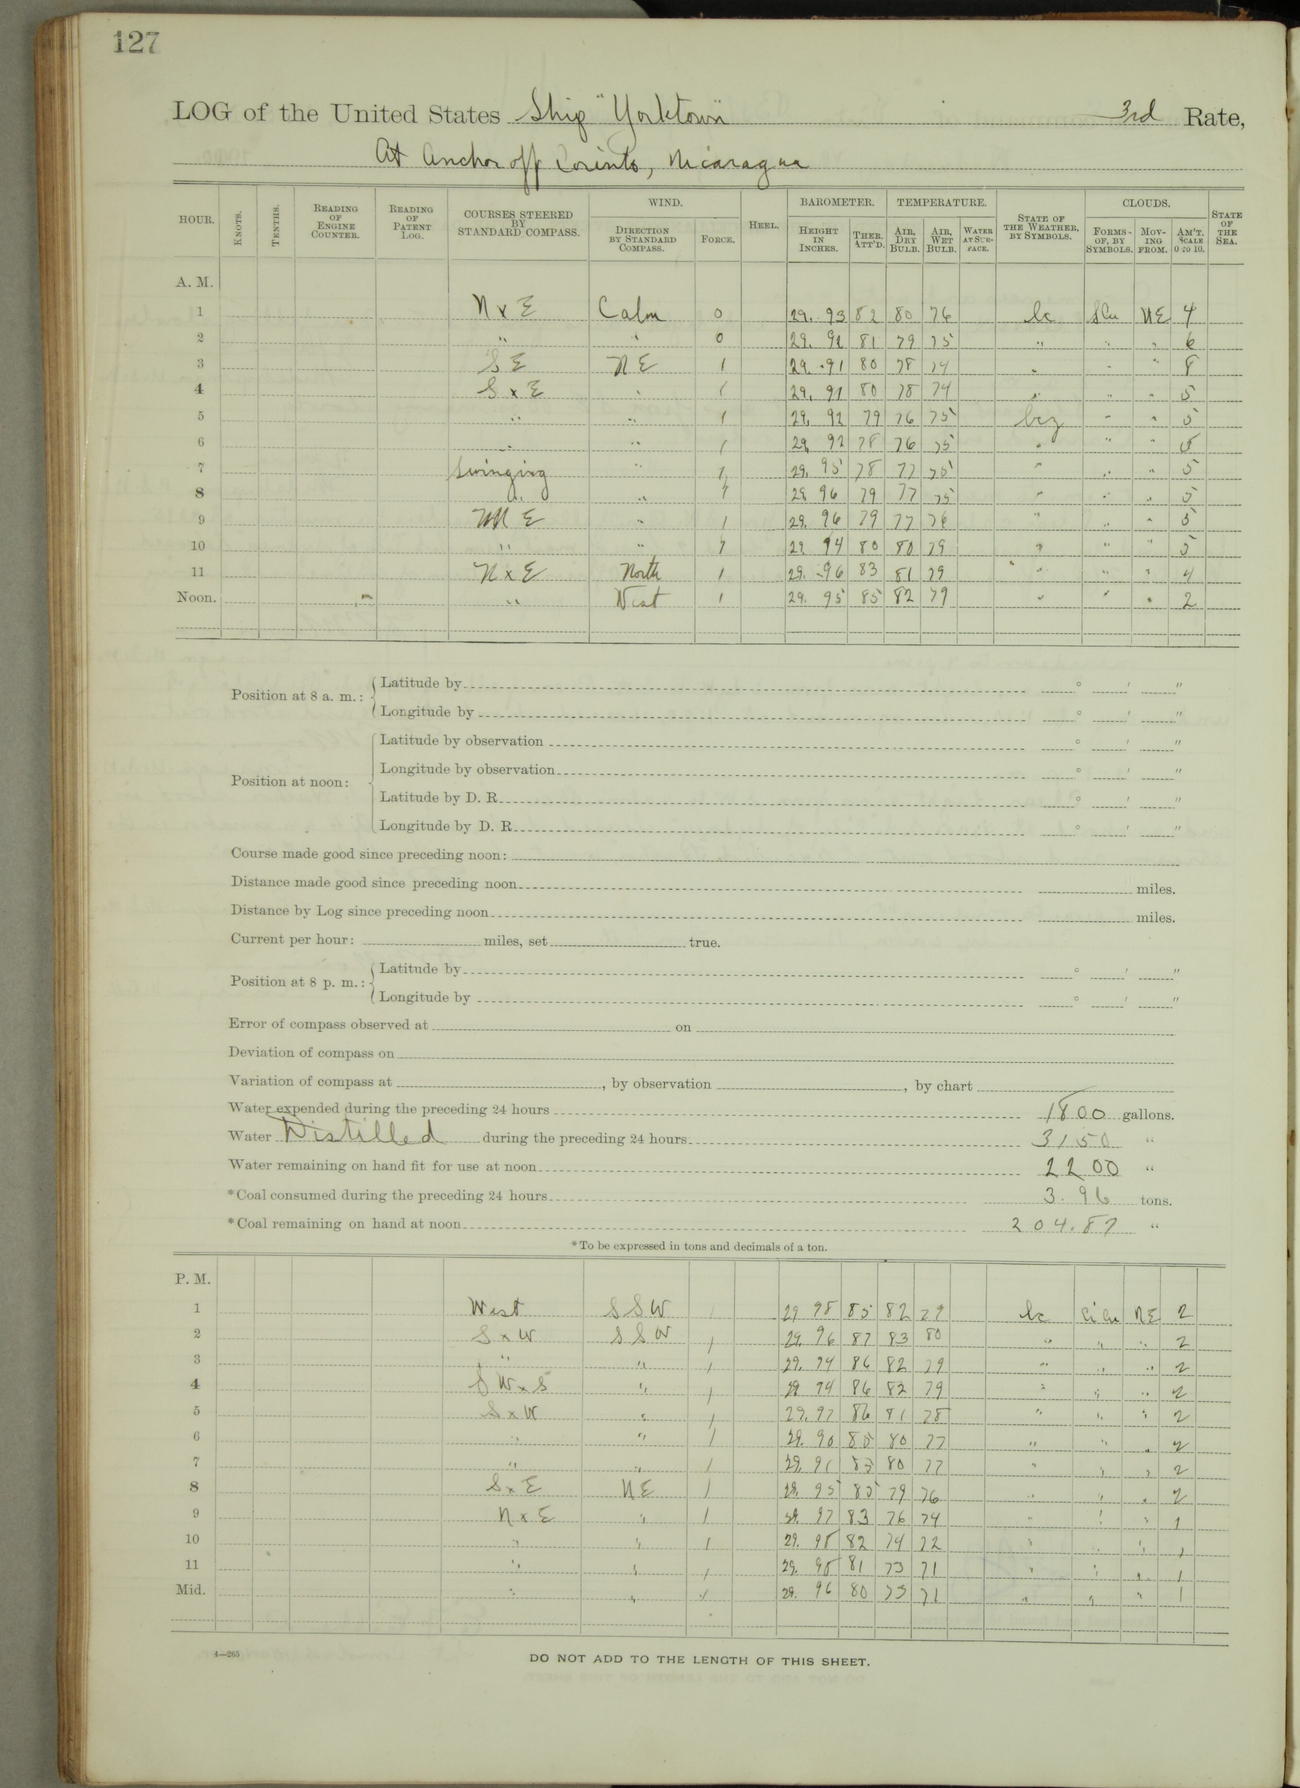 127
LOG of the United States Ship "Yorktown" 3rd Rate,
At Anchor off Corinto, Nicaragua
HOUR. KNOTS. TENTHS. READING OF ENGINE COUNTER. READING OF PATENT LOG. COURSES STEERED BY STANDARD COMPASS. WIND. DIRECTION BY STANDARD COMPASS. FORCE. HEEL. BAROMETER. HEIGHT IN INCHES. THER. ATT'D. TEMPERATURE. AIR, DRY BULB. AIR, WET BULB. WATER AT SURFACE. STATE OF THE WEATHER, BY SYMBOLS. CLOUDS. FORMS OF, BY SYMBOLS. MOVING FROM. AM'T. SCALE 0 TO 10. STATE OF THE SEA.
A. M.
1 N x E Calm 0 29. 93 82 80 76 bc SCu NE 4
2 " " 0 29. 92 81 79 75 " " " 6
3 S E N E 1 29. 91 80 78 74 " " " 8
4 S x E " 1 29. 91 80 78 74 " " " 5
5 " " 1 29. 92 79 76 75 bcz " " 5
6 " " 1 29. 92 78 76 75 " " " 5
7 Swinging " 1 29. 95 78 77 75 " " " 5
8 " " 1 29. 96 79 77 75 " " " 5
9 NNE " 1 29. 96 79 77 76 " " " 5
10 " " 1 29. 94 80 80 79 " " " 5
11 N x E North 1 29. 96 83 81 79 " " " 4
Noon. " West 1 29. 95 85 82 79 " " " 2
Position at 8 a. m.: Latitude by ° ' "
Longitude by ° ' "
Position at noon: Latitude by observation ° ' "
Longitude by observation ° ' "
Latitude by D. R. ° ' "
Longitude by D. R. ° ' "
Course made good since preceding noon:
Distance made good since preceding noon miles.
Distance by Log since preceding noon miles.
Current per hour: miles, set true.
Position at 8 p. m.: Latitude by ° ' "
Longitude by ° ' "
Error of compass observed at on
Deviation of compass on
Variation of compass at , by observation , by chart
Water expended during the preceding 24 hours 1800 gallons.
Water Distilled during the preceding 24 hours 3150 "
Water remaining on hand fit for use at noon 2200 "
*Coal consumed during the preceding 24 hours 3.96 tons.
*Coal remaining on hand at noon 204.87 "
*To be expressed in tons and decimals of a ton.
P. M.
1 West S S W 1 29 98 85 82 79 bc Ci Cu NE 2
2 S x W S S W 1 29. 96 87 83 80 " " " 2
3 " " 1 29. 94 86 82 79 " " " 2
4 S W x S " 1 29 94 86 82 79 " " " 2
5 S x W " 1 29. 92 86 81 78 " " " 2
6 " " 1 29. 90 85 80 77 " " " 2
7 " " 1 29. 91 85 80 77 " " " 2
8 S x E N E 1 29. 95 85 79 76 " " " 2
9 N x E " 1 29. 97 83 76 74 " " " 1
10 " " 1 29. 98 82 74 72 " " " 1
11 " " 1 29. 98 81 73 71 " " " 1
Mid. " " 1 29. 96 80 73 71 " " " 1
4—265
DO NOT ADD TO THE LENGTH OF THIS SHEET.